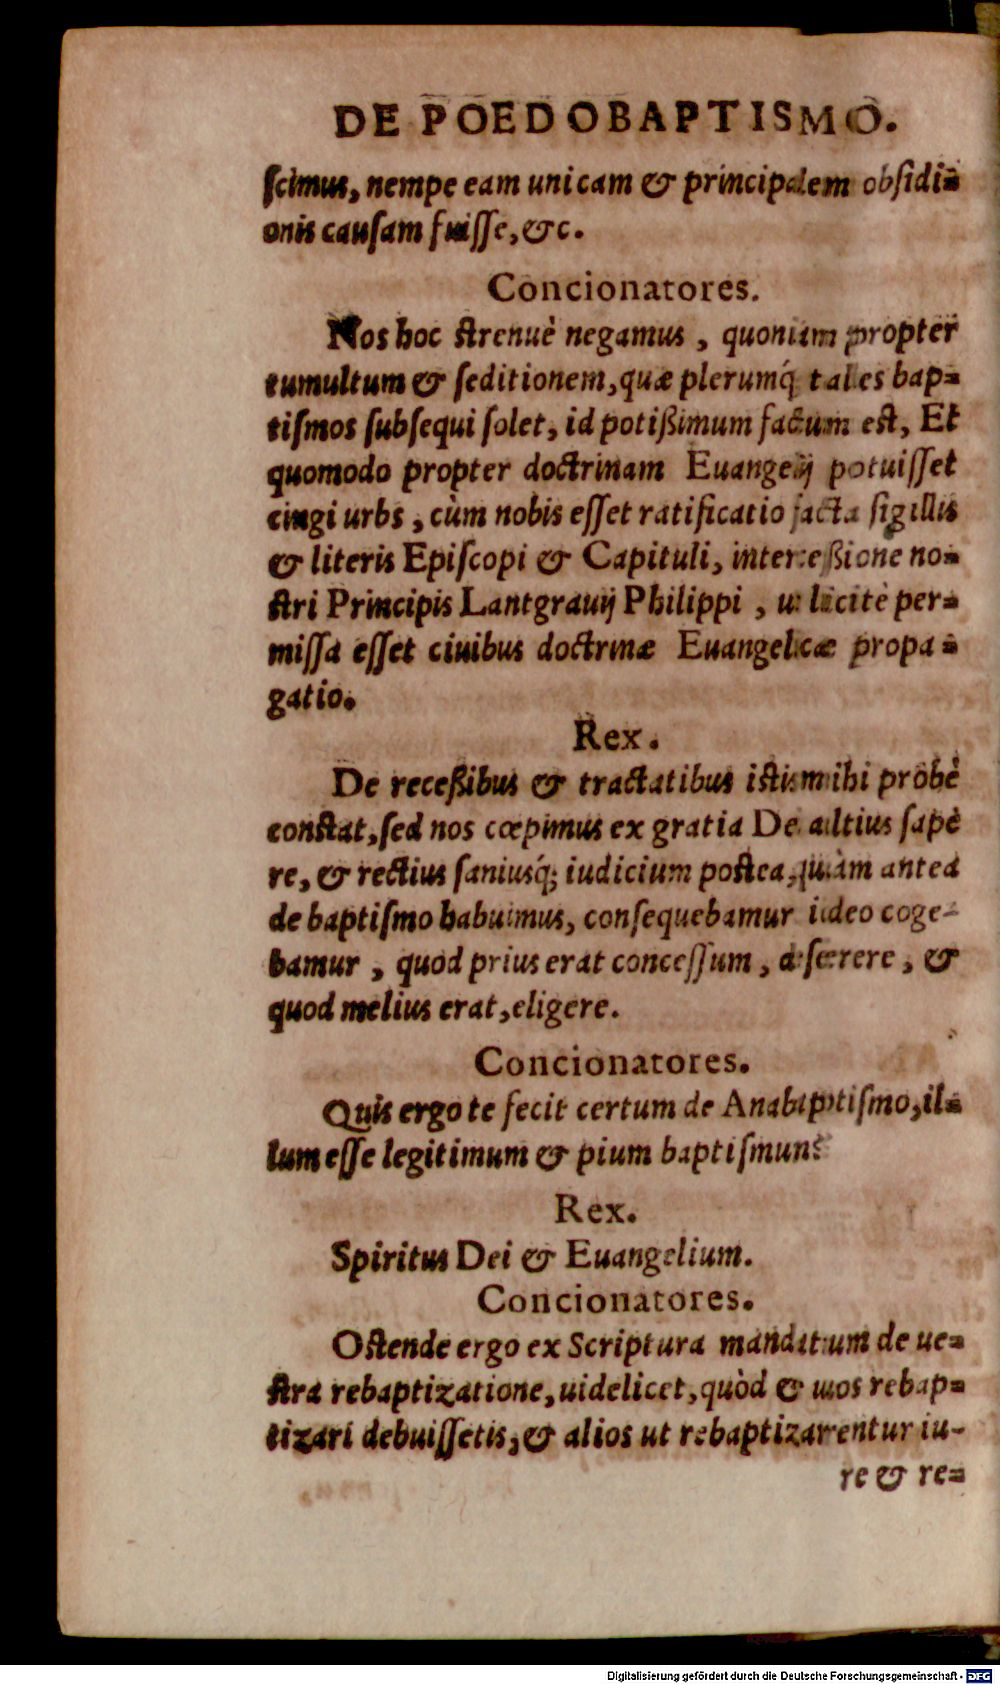 DE POEDOBAPTISMO.
ſcimus, nempe eam unicam & principalem obſidi=
onis cauſam fuiſſe, &c.
Concionatores.
Nos hoc ſtrenuè negamus, quoniam propter
tumultum & ſeditionem, quæ plerumq́ tales bap=
tiſmos ſubſequi ſolet, id potißimum factum eſt, Et
quomodo propter doctrinam Euangelij potuiſſet
cingi urbs, cùm nobis eſſet ratificatio facta ſigillis
& literis Epiſcopi & Capituli, interceßione no=
ſtri Principis Lantgrauij Philippi, ut licitè per=
miſſa eſſet ciuibus doctrinæ Euangelicæ propa=
gatio.
Rex.
De receßibus & tractatibus iſtis mihi probè
conſtat, ſed nos cœpimus ex gratia Dei altius ſapè
re, & rectius ſaniusq́; iudicium poſtea, quàm antea
de baptiſmo habuimus, conſequebamur ideo coge-
bamur, quod prius erat conceſſum, deſerere, &
quod melius erat, eligere.
Concionatores.
Quis ergo te fecit certum de Anabaptiſmo, il=
lum eſſe legitimum & pium baptiſmum?
Rex.
Spiritus Dei & Euangelium.
Concionatores.
Oſtende ergo ex Scriptura mandatum de ue=
ſtra rebaptizatione, uidelicet, quòd & uos rebap=
tizari debuiſſetis, & alios ut rebaptizarentur iu-
re & re=
Digitalisierung gefördert durch die Deutsche Forschungsgemeinschaft - DFG